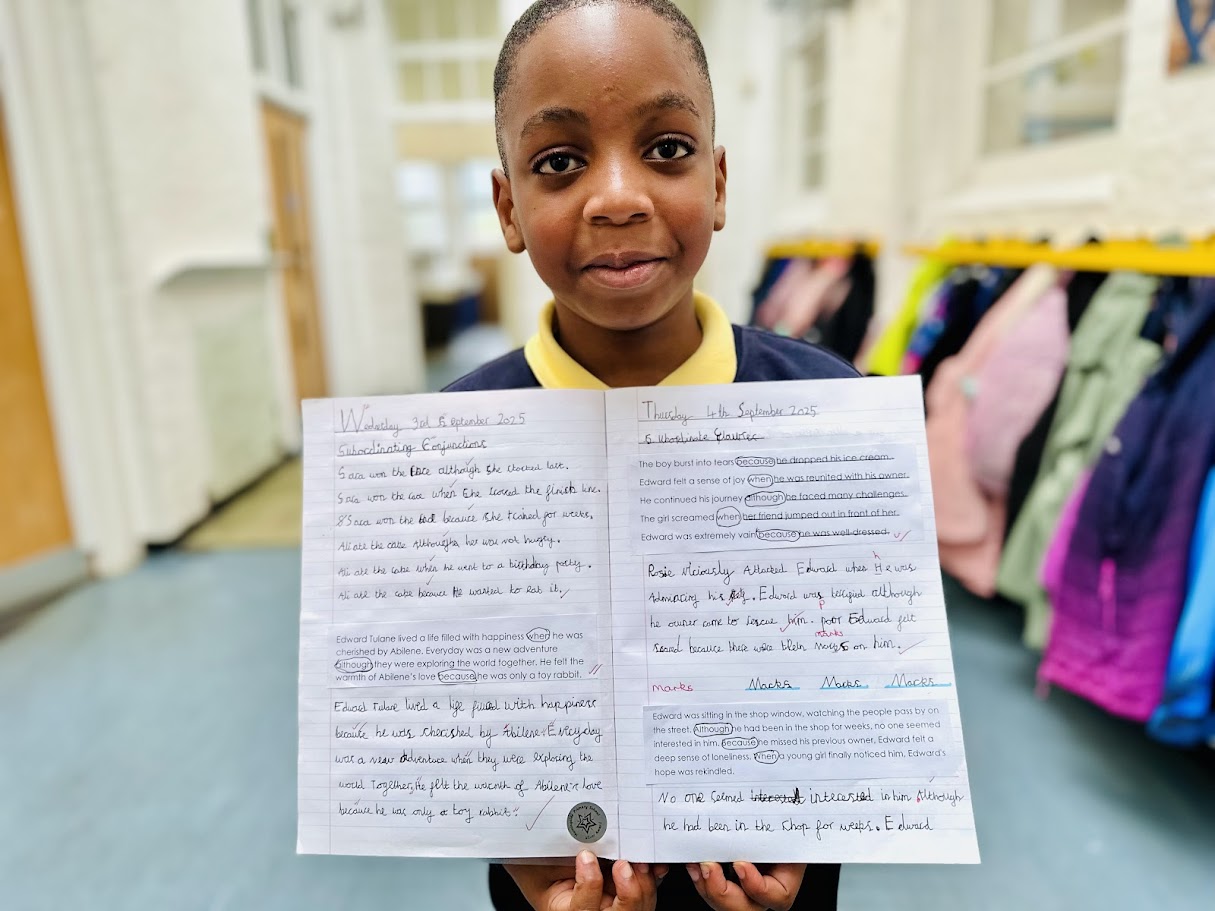 Wednesday 3rd September 2025
Subordinating Conjunctions
Sara won the race although she started last.
Sara won the race when she crossed the finish line.
Sara won the race because she trained for weeks.
Ali ate the cake Although he was not hungry.
Ali ate the cake when he went to a birthday party.
Ali ate the cake because he wanted to eat it.
Edward Tulane lived a life filled with happiness when he was
cherished by Abilene. Everyday was a new adventure
although they were exploring the world together. He felt the
warmth of Abilene's love because he was only a toy rabbit.
Edward Tulane lived a life filled with happiness
because he was cherished by Abilene. Everyday
was a new adventure when they were exploring the
world Together, He felt the warmth of Abilene's love
because he was only a toy rabbit.
Thursday 4th September 2025
Subordinate Clauses
The boy burst into tears because he dropped his ice cream.
Edward felt a sense of joy when he was reunited with his owner.
He continued his journey although he faced many challenges.
The girl screamed when her friend jumped out in front of her.
Edward was extremely vain because he was well-dressed.
h
Rosie viciously Attacked Edward when He was
Admiring his. Edward was terrified although
p
he owner came to rescue him. poor Edward felt
marks
scared because there were on him.
Marks Macks Macks Macks
Edward was sitting in the shop window, watching the people pass by on
the street. Although he had been in the shop for weeks, no one seemed
interested in him. Because he missed his previous owner, Edward felt a
deep sense of loneliness. When a young girl finally noticed him, Edward's
hope was rekindled.
No one Seemed interested in him Although
he had been in the shop for weeks. Edward